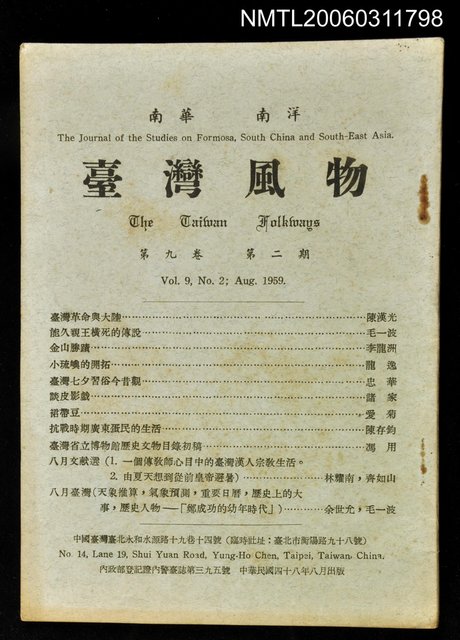 NMTL20060311798
南華　南洋
The Journal of the Studies on Formosa, South China and South-East Asia.
臺灣風物
The Taiwan Folkways
第九卷　第二期
Vol. 9, No. 2; Aug. 1959.
臺灣革命與大陸……陳漢光
能久親王橫死的傳說……毛一波
金山勝蹟……李龍洲
小琉球的開拓……龍逸
臺灣七夕習俗今昔觀……忠華
談皮影戲……諸家
裙帶豆……愛菊
抗戰時期廣東蛋民的生活……陳存鈞
臺灣省立博物館歷史文物目錄初稿……馮用
八月文獻選(1. 一個傳敎師心目中的臺灣漢人宗敎生活。
2. 由夏天想到從前皇帝避暑)……林耀南，齊如山
八月臺灣(天象推算，氣象預測，重要日曆，歷史上的大
事，歷史人物—「鄭成功的幼年時代」)……余世允，毛一波
中國臺灣臺北永和水源路十九巷十四號（臨時社址：臺北市衡陽路九十八號）
No. 14, Lane 19, Shui Yuan Road, Yung-Ho Chen, Taipei, Taiwan, China.
內政部登記證內警臺誌第三九五號　中華民國四十八年八月出版